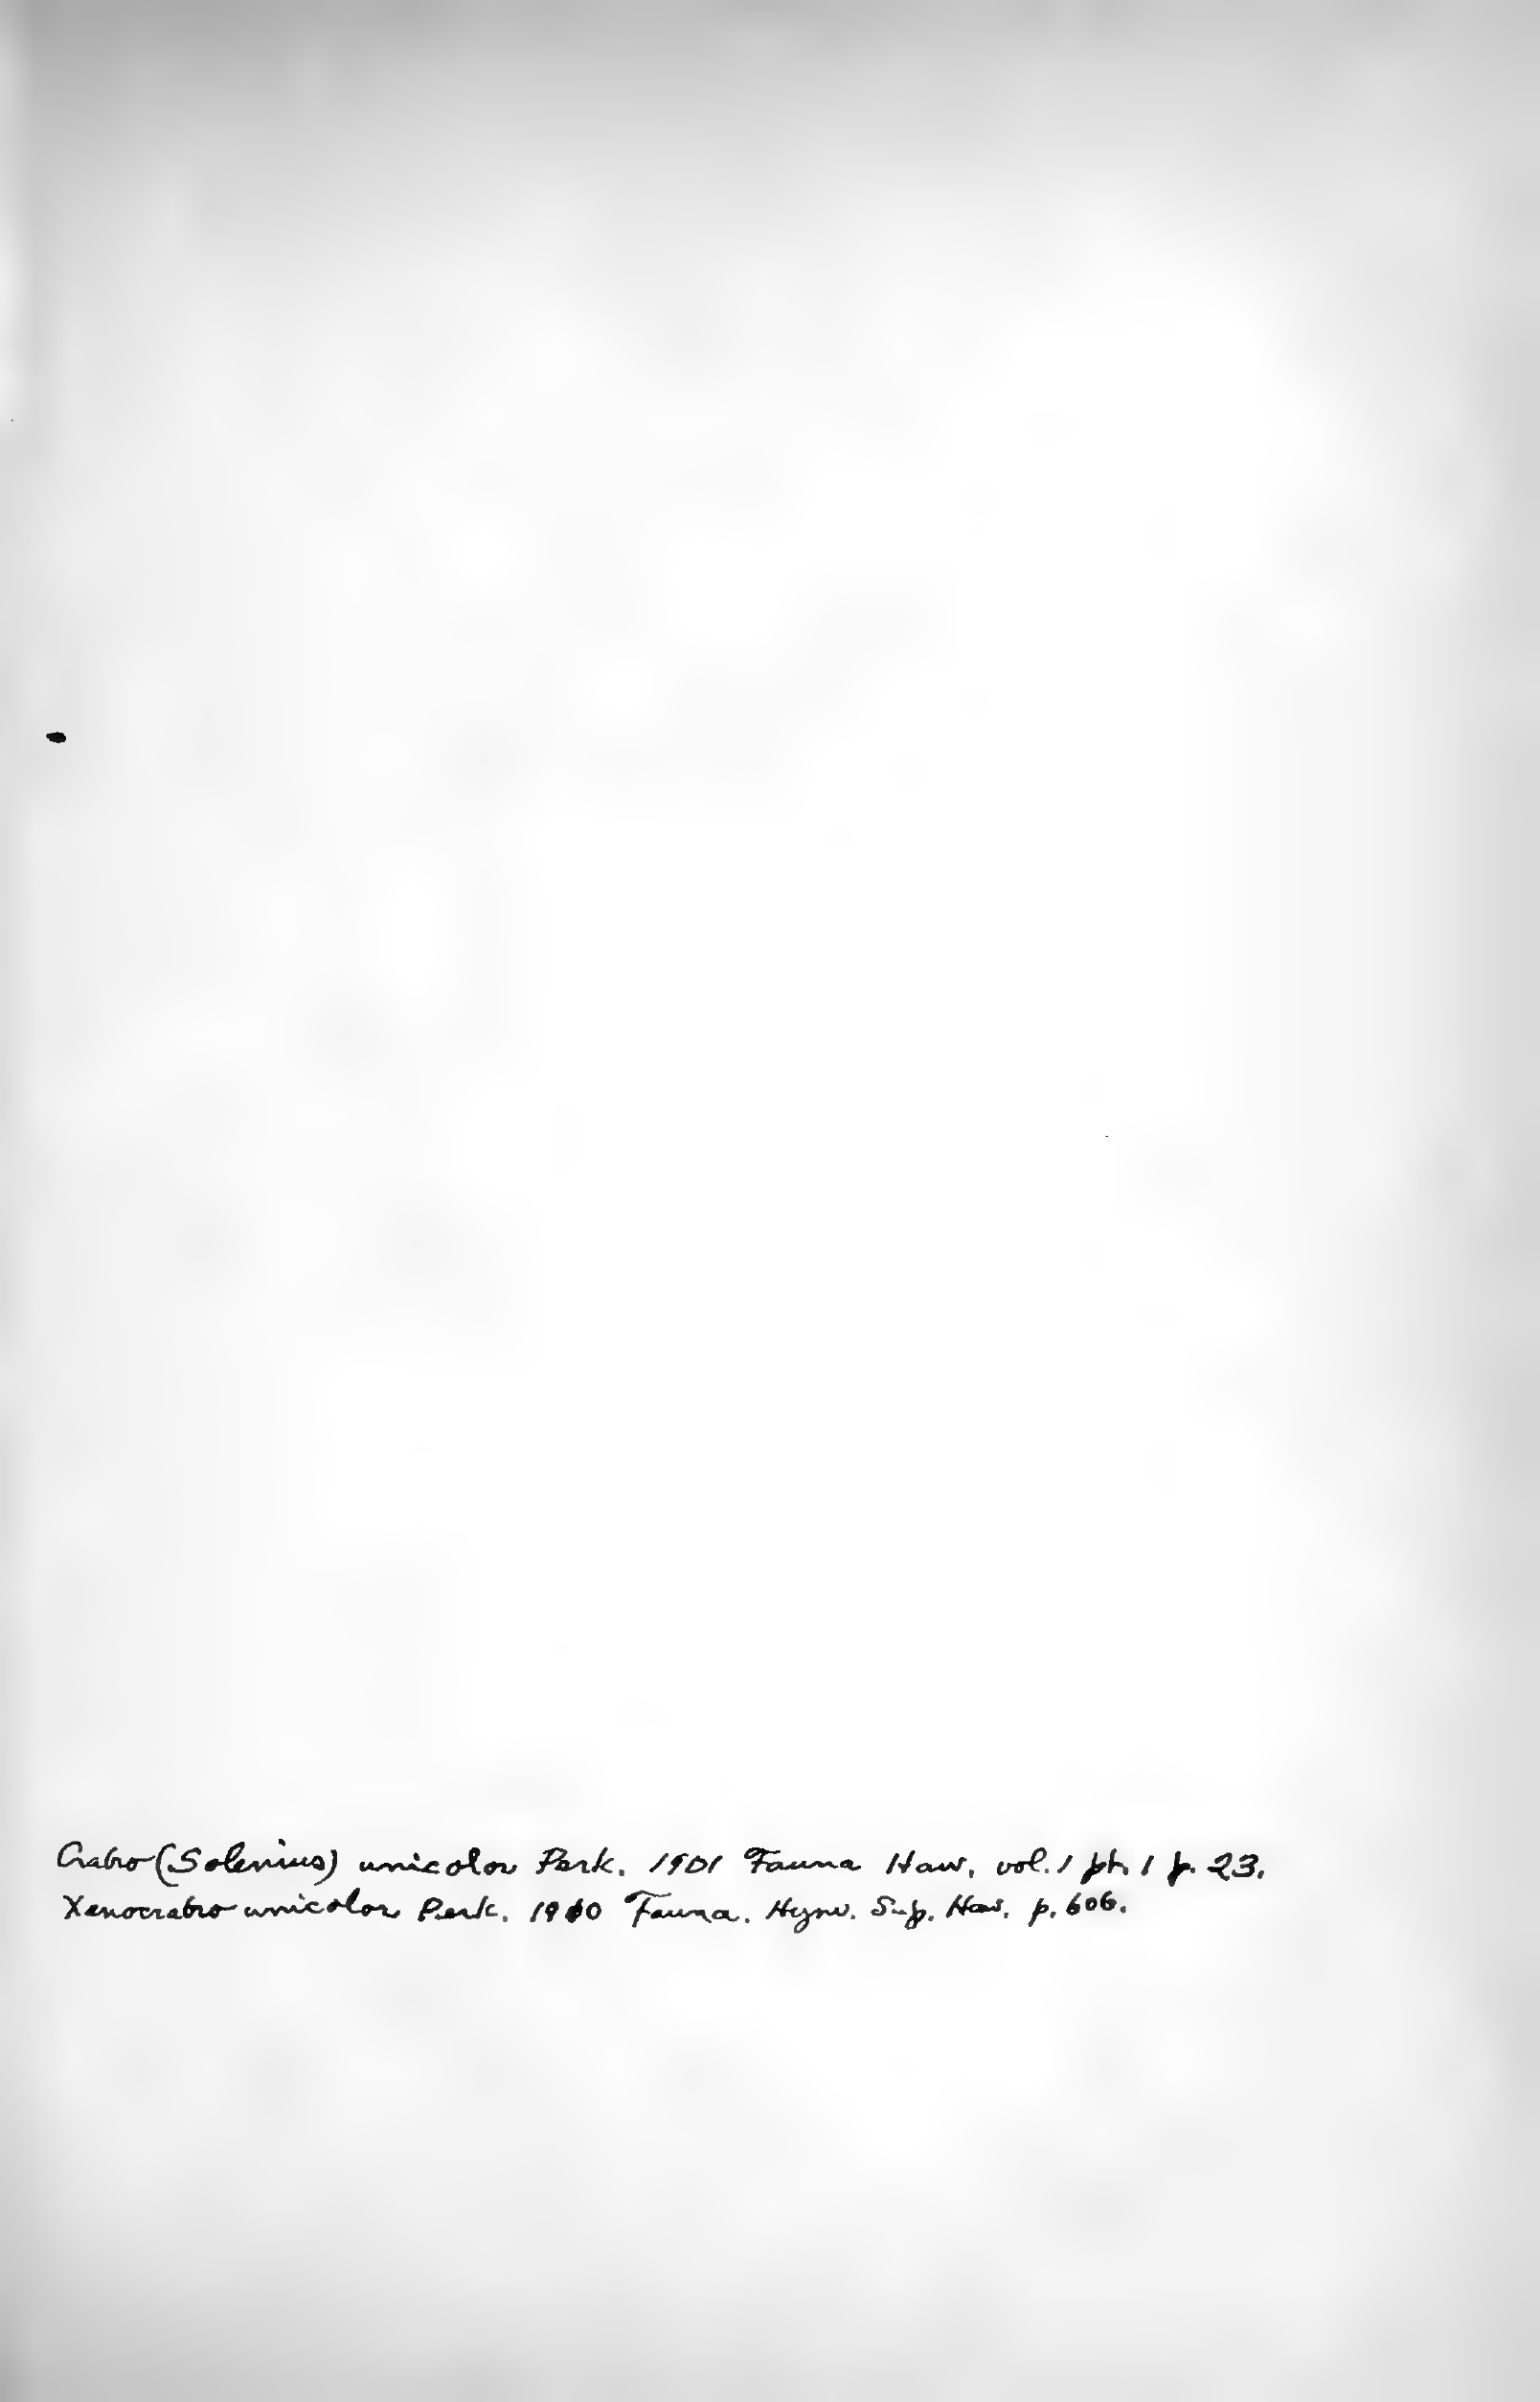 Crabro (Solenius) unicolor Perk. 1901 Fauna Haw. vol. 1 pt. 1 p. 23.
Xenocrabro unicolor Perk. 1910 Fauna. Hym. Sup. Haw. p. 606.